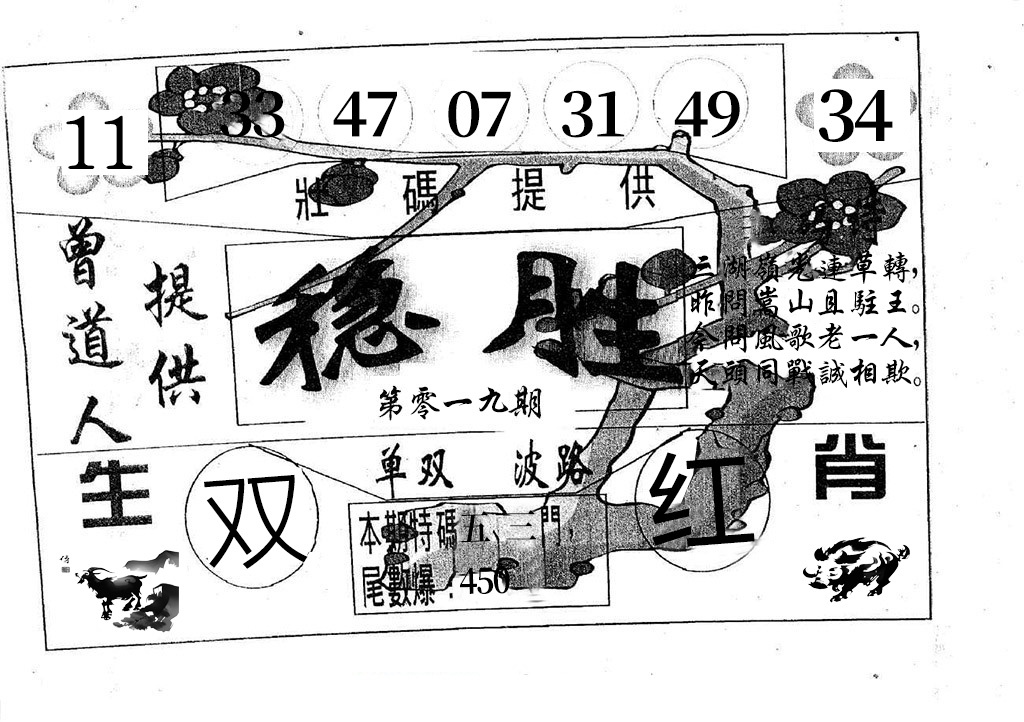 11 33 47 07 31 49 34
壯碼提供
曾道人
提供
稳胜
第零一九期
三湖嶺老連草轉,
昨問嵩山且駐王。
奈問風歌老一人,
天頭同戰誠相欺。
单双 波路
双
红
生
肖
本期特碼五、三門,
尾數爆:450